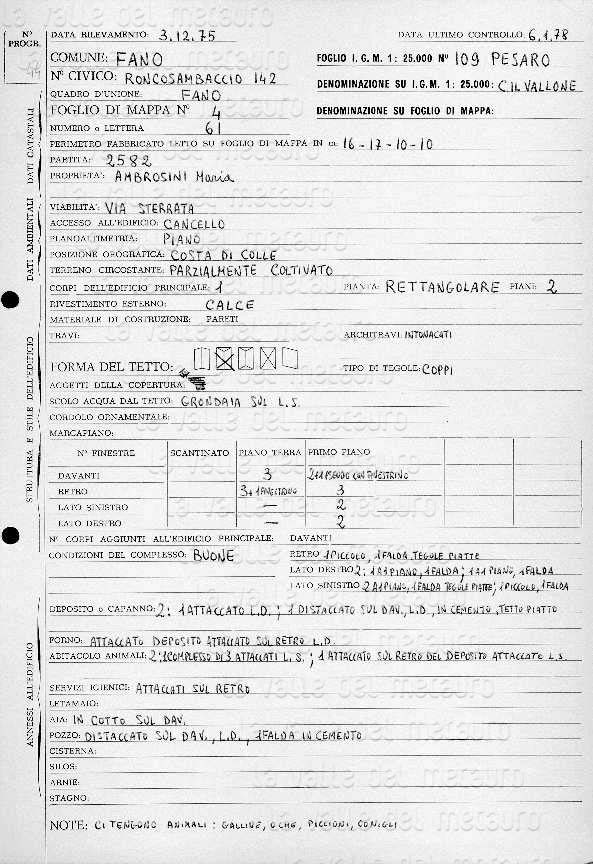 N° PROGR.
DATA RILEVAMENTO: 3.12.75 DATA ULTIMO CONTROLLO: 6.1.78
COMUNE: FANO FOGLIO I.G.M. 1: 25.000 N° 109 PESARO
N° CIVICO: RONCOSAMBACCIO 142 DENOMINAZIONE SU I.G.M. 1: 25.000: C. IL VALLONE
QUADRO D'UNIONE: FANO
FOGLIO DI MAPPA N° 4 DENOMINAZIONE SU FOGLIO DI MAPPA:
NUMERO o LETTERA 61
PERIMETRO FABBRICATO LETTO SU FOGLIO DI MAPPA IN m. 16-17-10-10
PARTITA: 2582
PROPRIETA': AMBROSINI Maria
VIABILITA': VIA STERRATA
ACCESSO ALL'EDIFICIO: CANCELLO
PLANOALTIMETRIA: PIANO
POSIZIONE OROGRAFICA: COSTA DI COLLE
TERRENO CIRCOSTANTE: PARZIALMENTE COLTIVATO
CORPI DELL'EDIFICIO PRINCIPALE: 1 PIANTA: RETTANGOLARE PIANI: 2
RIVESTIMENTO ESTERNO: CALCE
MATERIALE DI COSTRUZIONE: PARETI
TRAVI: ARCHITRAVI: INTONACATI
FORMA DEL TETTO: TIPO DI TEGOLE: COPPI
AGGETTI DELLA COPERTURA:
SCOLO ACQUA DAL TETTO: GRONDAIA SUL L.S.
CORDOLO ORNAMENTALE:
MARCAPIANO:
N° FINESTRE SCANTINATO PIANO TERRA PRIMO PIANO
DAVANTI 3 2+1 PSEUDO CON FINESTRINO
RETRO 3+1 FINESTRINO 3
LATO SINISTRO — 2
LATO DESTRO — 2
N° CORPI AGGIUNTI ALL'EDIFICIO PRINCIPALE: DAVANTI
CONDIZIONI DEL COMPLESSO: BUONE RETRO 1 PICCOLO, 1 FALDA TEGOLE PIATTE
LATO DESTRO 2: 1 A 1 PIANO, 1 FALDA; 1 A 1 PIANO, 1 FALDA
LATO SINISTRO 2 A 1 PIANO, 1 FALDA TEGOLE PIATTE; 1 PICCOLO, 1 FALDA
DEPOSITO o CAPANNO: 2: 1 ATTACCATO L.D.; 1 DISTACCATO SUL DAV., L.D., IN CEMENTO, TETTO PIATTO
FORNO: ATTACCATO DEPOSITO ATTACCATO SUL RETRO L.D.
ABITACOLO ANIMALI: 2: 1 COMPLESSO DI 3 ATTACCATI L.S.; 1 ATTACCATO SUL RETRO DEL DEPOSITO ATTACCATO L.S.
SERVIZI IGIENICI: ATTACCATI SUL RETRO
LETAMAIO:
AIA: IN COTTO SUL DAV.
POZZO: DISTACCATO SUL DAV., L.D., 1 FALDA IN CEMENTO
CISTERNA:
SILOS:
ARNIE:
STAGNO:
NOTE: CI TENGONO ANIMALI: GALLINE, OCHE, PICCIONI, CONIGLI
DATI CATASTALI
DATI AMBIENTALI
STRUTTURA E STILE DELL'EDIFICIO
ANNESSI ALL'EDIFICIO
la valle del metauro